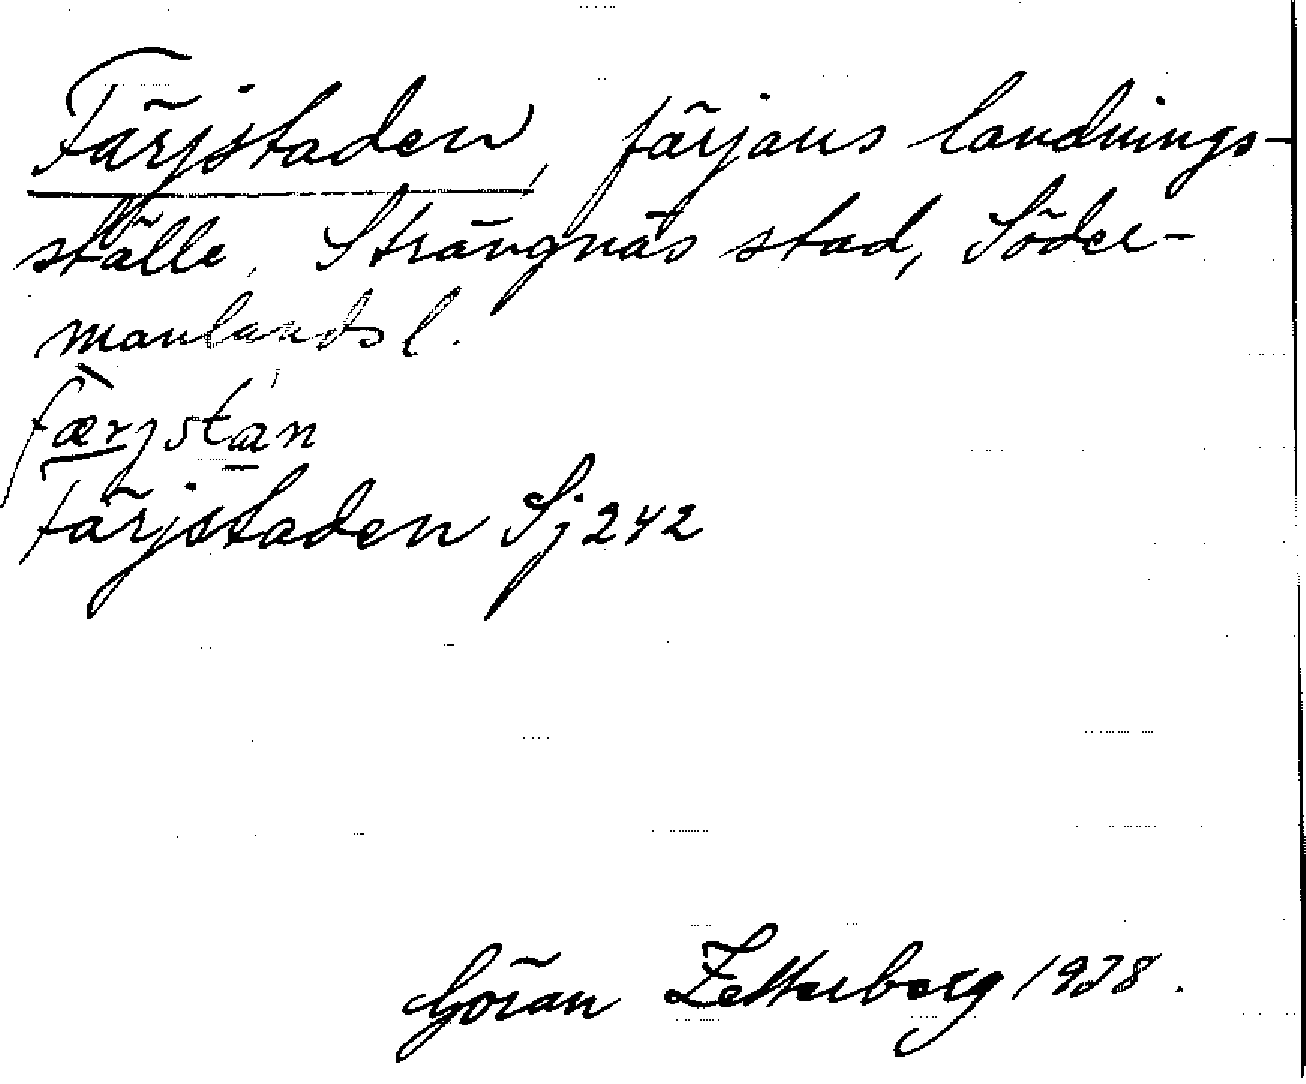 Färjstaden, färjans landnings-
ställe, Strängnäs stad, Söder-
manlands l.
færjstan
Färjstaden Sj 242
Göran Zetterberg 1938.